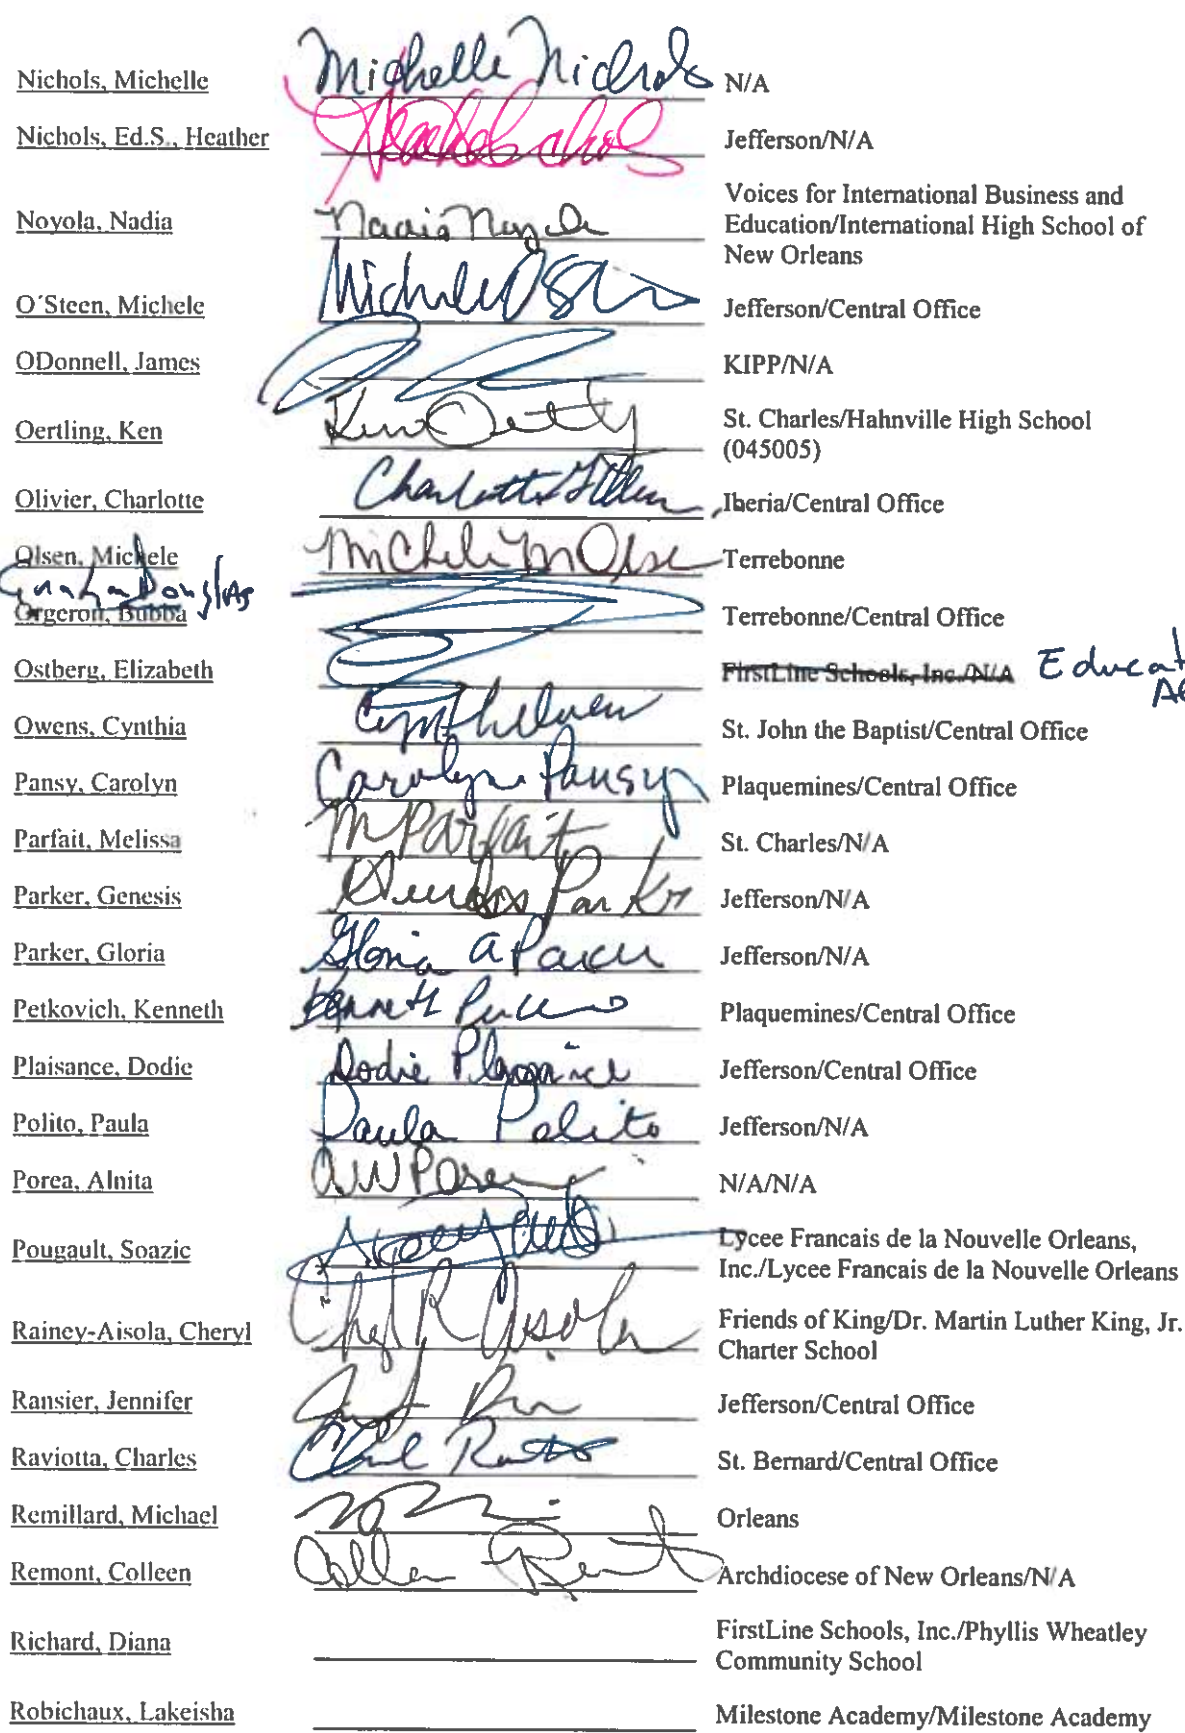 Nichols, Michelle Michelle Nichols N/A
Nichols, Ed.S., Heather Jefferson/N/A
Voices for International Business and
Noyola, Nadia Nadia Noyola Education/International High School of
New Orleans
O´Steen, Michele Michele O'Steen Jefferson/Central Office
ODonnell, James KIPP/N/A
Oertling, Ken Ken St. Charles/Hahnville High School
(045005)
Olivier, Charlotte Charlotte Iberia/Central Office
Olsen, Michele Michele M Olse Terrebonne
Douglas
Orgeron, Bubba Terrebonne/Central Office
Ostberg, Elizabeth FirstLine Schools, Inc./N/A Educat
Owens, Cynthia St. John the Baptist/Central Office
Pansy, Carolyn Carolyn Pansy Plaquemines/Central Office
Parfait, Melissa M Parfait St. Charles/N/A
Parker, Genesis Parker Jefferson/N/A
Parker, Gloria Gloria A Parker Jefferson/N/A
Petkovich, Kenneth Kenneth Plaquemines/Central Office
Plaisance, Dodie Dodie Plaisance Jefferson/Central Office
Polito, Paula Paula Polito Jefferson/N/A
Porea, Alnita AW Porea N/A/N/A
Lycee Francais de la Nouvelle Orleans,
Pougault, Soazic Inc./Lycee Francais de la Nouvelle Orleans
Friends of King/Dr. Martin Luther King, Jr.
Rainey-Aisola, Cheryl Cheryl R Aisola Charter School
Ransier, Jennifer Jefferson/Central Office
Raviotta, Charles St. Bernard/Central Office
Remillard, Michael Orleans
Remont, Colleen Colleen Remont Archdiocese of New Orleans/N/A
FirstLine Schools, Inc./Phyllis Wheatley
Richard, Diana Community School
Robichaux, Lakeisha Milestone Academy/Milestone Academy